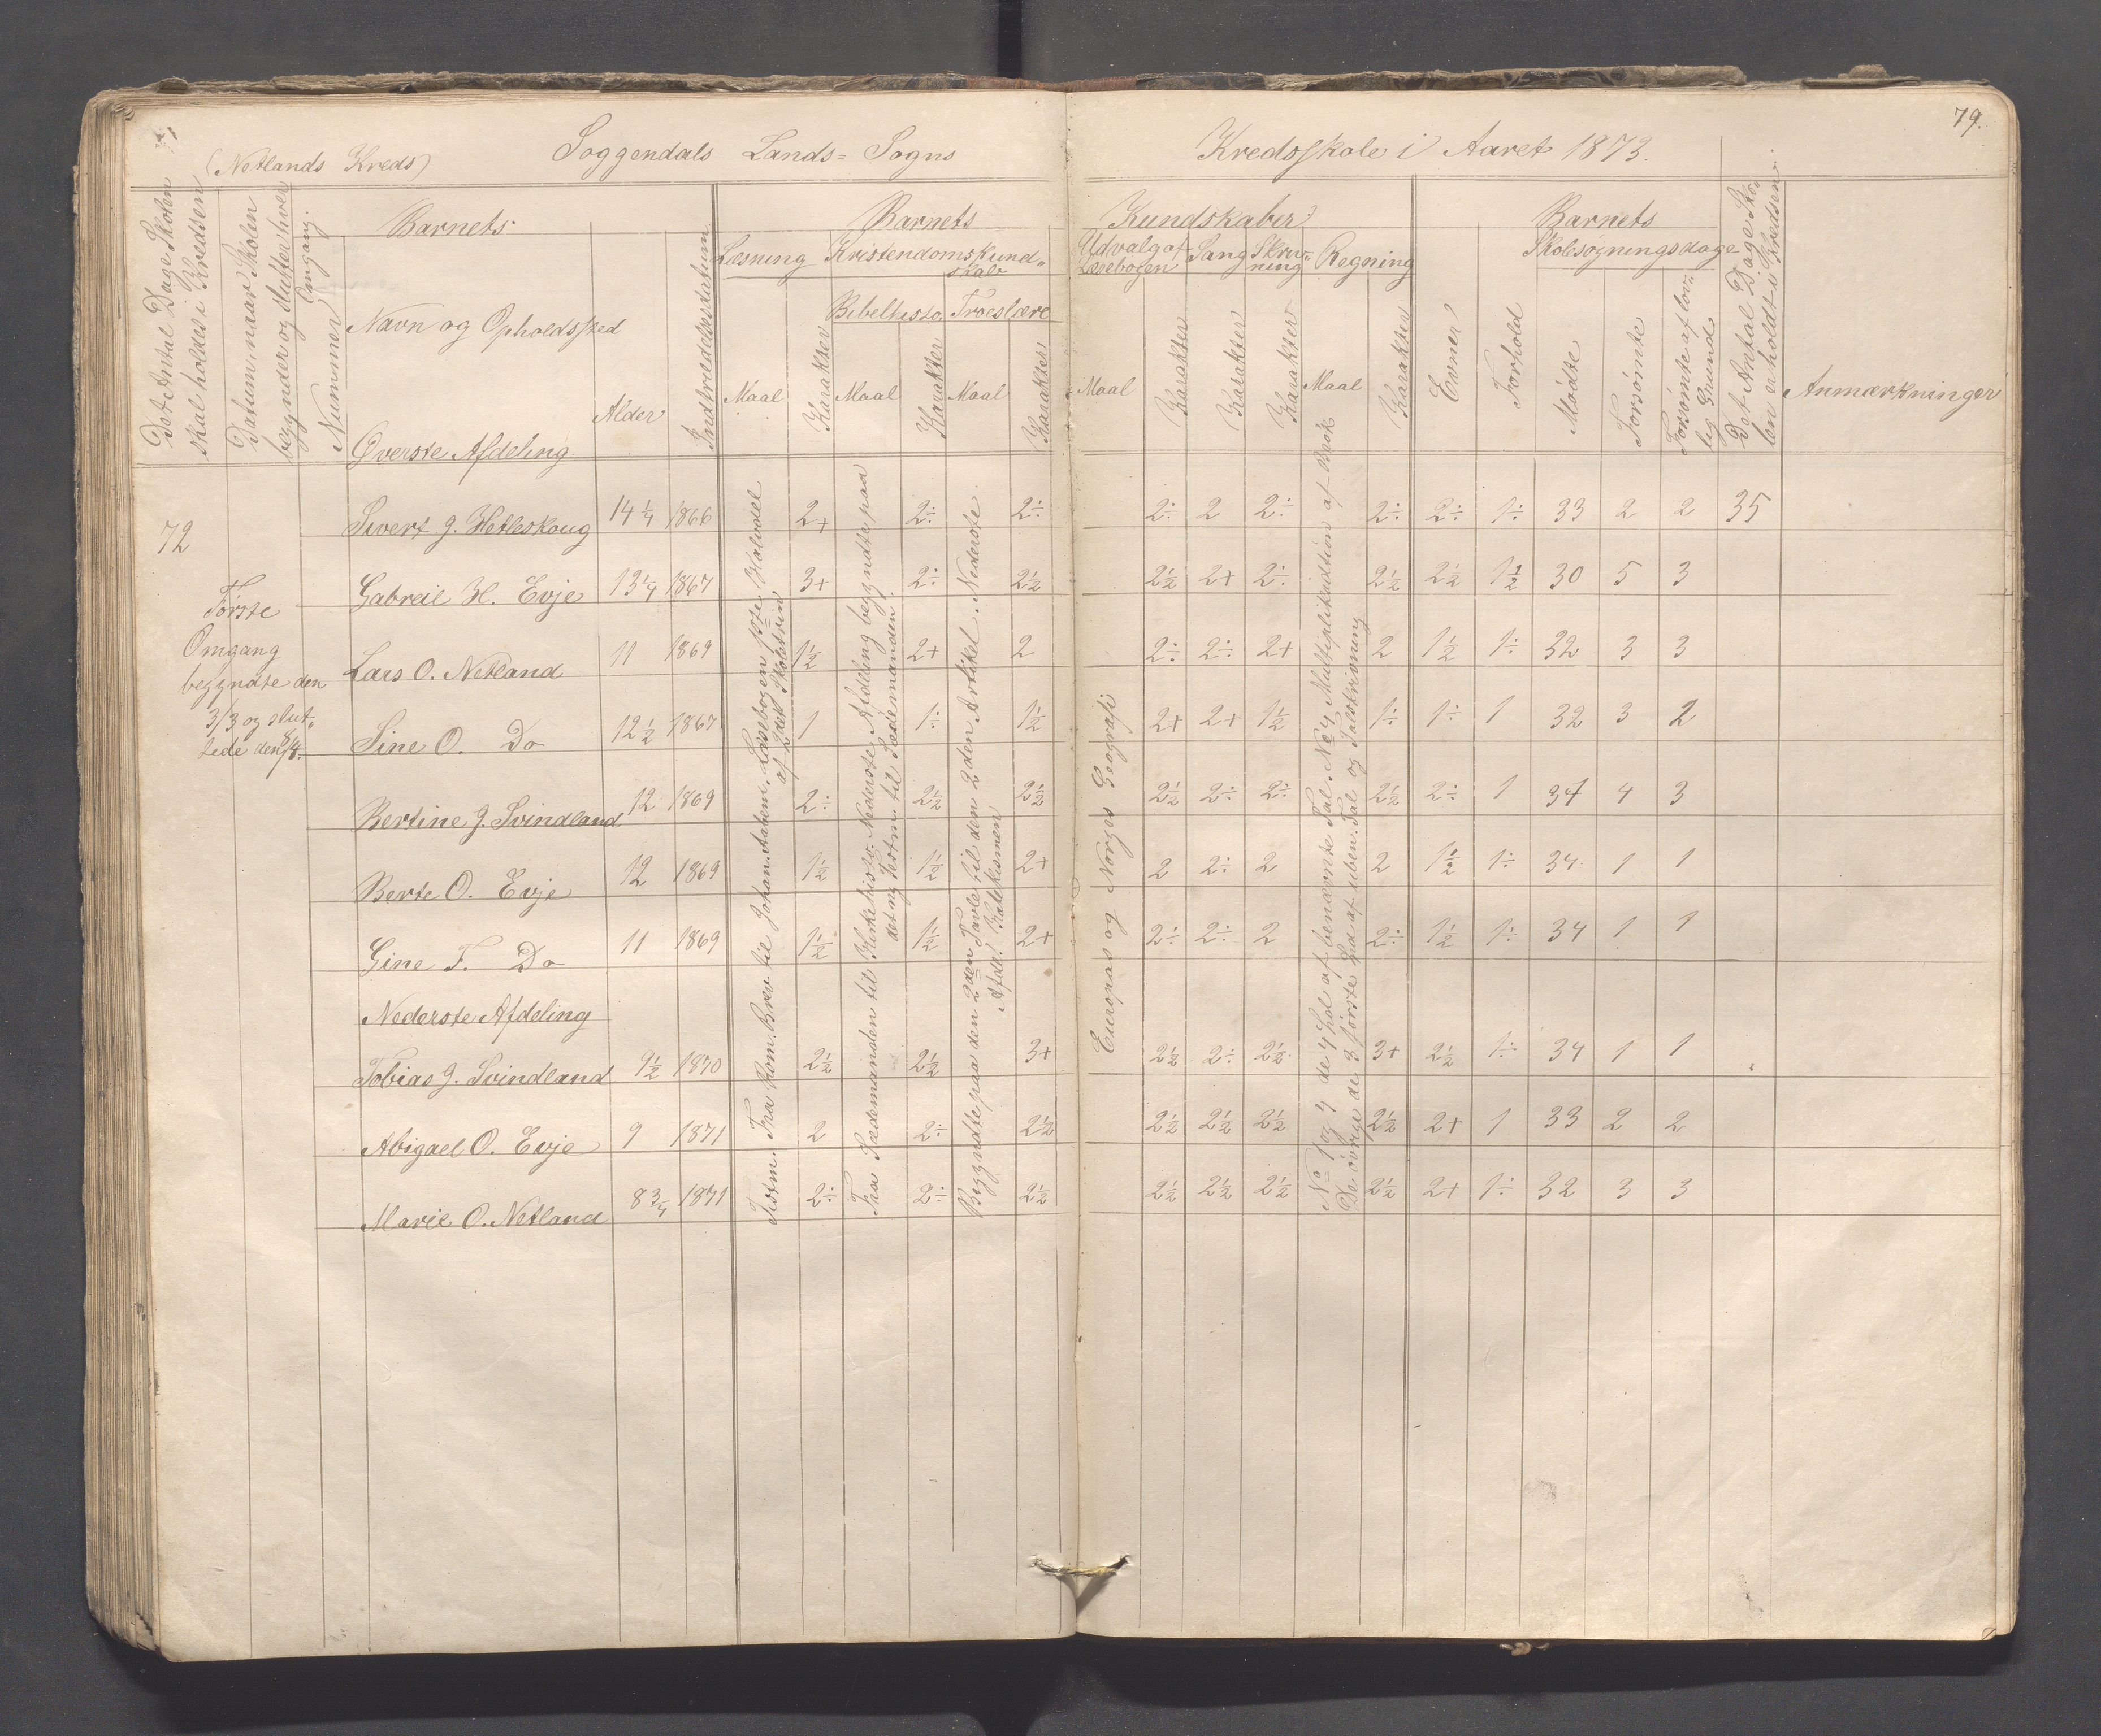 79.
(Netlands Kreds) Soggendals Lands= Sogns Kredsskole i Aaret 1873.
Det Antal Dage Skolen
skal holdes i Kredsen
Datum, naar Skolen
begynder og slutter hver
Omgang.
Nummer
Barnets
Navn og Opholdssted
Alder
Indtrædelsesdatum
Øverste Afdeling
Barnets Kundskaber
Læsning
Kristendomskund-
skab
Bibelhisto. Troeslære
Maal Karakter Maal Karakter Maal Karakter
Udvalg af
Læsebogen
Sang
Skriv-
ning
Regning
Maal Karakter Karakter Karakter Maal Karakter
Evner
Forhold
Barnets
Skolesøgningsdage
Mødte
Forsømte
Forsømte af lov-
lig Grund
Det Antal Dage Sko-
len er holdt i Kredsen
Anmærkninger
72
Første
Omgang
begyndte den
3/3 og slut-
tede den 8/4.
Sivert J. Hetleskoug 14 1/4 1866 2+ 2÷ 2÷ 2÷ 2 2÷ 2÷ 2÷ 1÷ 33 2 2 35
Gabreil H. Evje 13 1/4 1867 3+ 2÷ 2 1/2 2 1/2 2+ 2÷ 2 1/2 2 1/2 1 1/2 30 5 3
Lars O. Netland 11 1869 1 1/2 2+ 2 2÷ 2÷ 2+ 2 1 1/2 1÷ 32 3 3
Sine O. Do 12 1/2 1867 1 1÷ 1 1/2 2+ 2+ 1 1/2 1÷ 1÷ 1 32 3 2
Bertine J. Svindland 12 1869 2÷ 2 1/2 2 1/2 2 1/2 2÷ 2÷ 2 1/2 2÷ 1 31 4 3
Berte O. Evje 12 1869 1 1/2 1 1/2 2+ 2 2÷ 2 2 1 1/2 1÷ 34 1 1
Gine F. Do 11 1869 1 1/2 1 1/2 2+ 2÷ 2÷ 2 2÷ 1 1/2 1÷ 34 1 1
Nederste Afdeling
Tobias J. Svindland 9 1/2 1870 2 1/2 2 1/2 3+ 2 1/2 2÷ 2 1/2 3+ 2 1/2 1÷ 34 1 1
Abigael O. Evje 9 1871 2 2÷ 2 1/2 2 1/2 2 1/2 2 1/2 2 1/2 2+ 1 33 2 2
Marie O. Netland 8 3/4 1871 2÷ 2÷ 2 1/2 2 1/2 2 1/2 2 1/2 2 1/2 2+ 1÷ 32 3 3
Testm. Fra Rom. Brev til Johan. Aaben. Læsebogen 1ste Halvdel
af 2det Skoletrin
Fra Sædemanden til Kirkehisto. Nederste Afdeling begyndte paa
det ny Testm. til Sædemanden.
Begyndte paa den 2den Tavle til den 2den Artikel. Nederste
Afdel. Katekismen
Europas og Norges Geografi
No 1 og 4 de 4 Spl. af benævnte Tal. No 4 Multiplikation af Brøk
De øvrige de 3 første Spl. af uben. Tal og Talskrivning